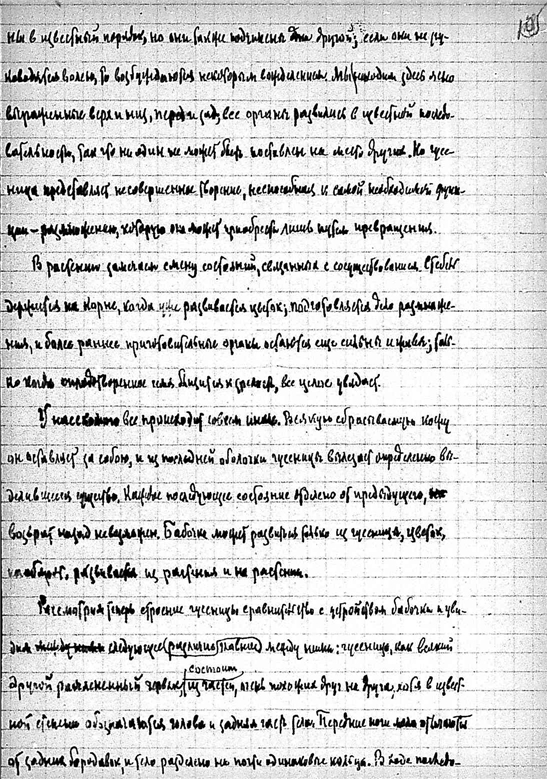 ны в известный порядок, но они также подчинены одна другой; если они не ру-
ководятся волею, то возбуждаются некоторым вожделением. Мы находим здесь ясно
выраженные верх и низ, перед и зад, все органы развились в известной последо-
вательности, так что ни один не может быть поставлен на место другого. Но гусе-
ница представляет несовершенное творение, неспособная к самой необходимой функ-
ции – размножению, которую она может приобрести лишь путем превращения.
В растении замечаем смену состояний, связанных с сосуществованием. Стебель
держится на корне, когда уже развивается цветок; подготовляется дело размноже-
ния, и более раннее приготовительные органы остаются еще сильны и живы; толь-
ко когда оплодотворенное семя близится к зрелости, все целое увядает.
У насекомого все происходит совсем иначе. Всякую сбрасываемую кожу
он оставляет за собою, и из последней оболочки гусеницы вылезает определенно вы-
делившееся существо. Каждое последующее состояние отделено от предыдущего,
возврат назад невозможен. Бабочка может развиться только из гусеницы, цветок,
наоборот, развивается из растения и на растении.
Рассмотрим теперь строение гусеницы сравнительно с устройством бабочки и уви-
дим следующее различие главное между ними: гусеница, как всякий
другой расчлененный червяк, состоит из частей, очень похожих друг на друга, хотя в извест-
ной степени обозначаются голова и задняя часть тела. Передние ноги мало отличаются
от задних бородавок, и тело разделено на почти одинаковые кольца. В ходе последо-